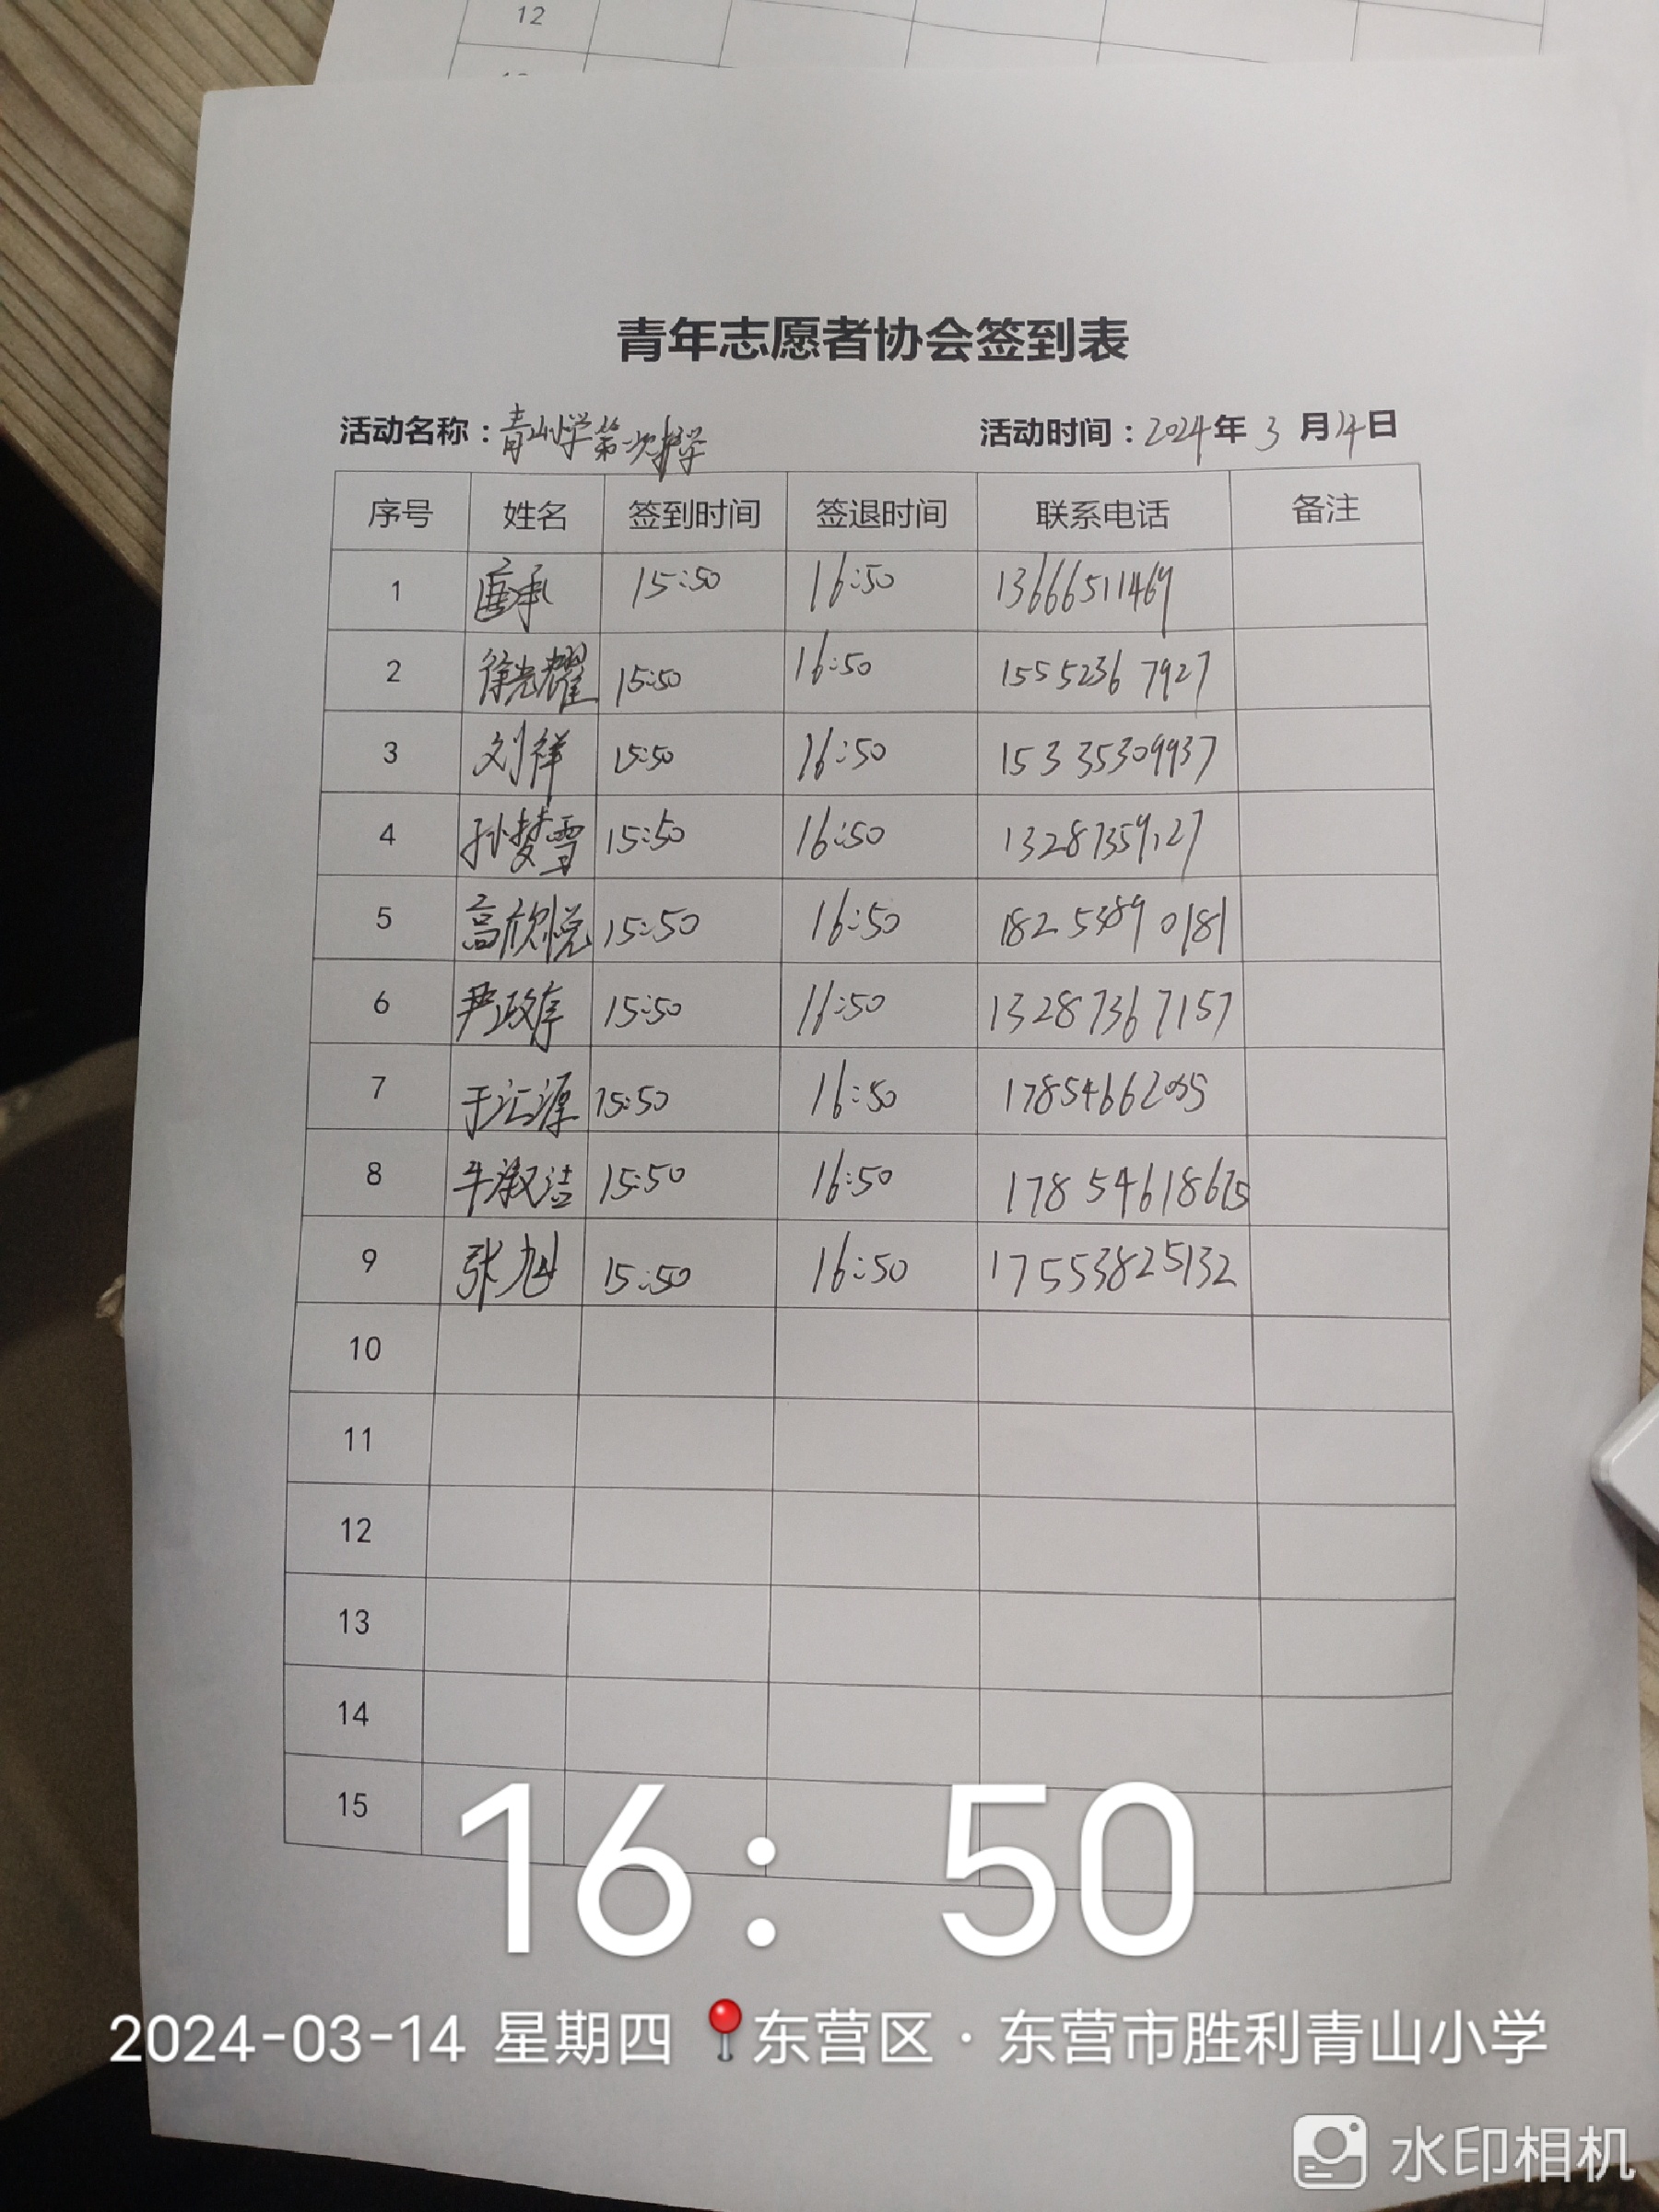 12
青年志愿者协会签到表
活动名称：青山小学第一次护学 活动时间：2024年 3 月14日
序号 姓名 签到时间 签退时间 联系电话 备注
1 唐承 15:50 16:50 13666511469
2 徐光耀 15:50 16:50 15552367927
3 刘祥 15:50 16:50 15335309937
4 孙梦雪 15:50 16:50 13287359127
5 高欣悦 15:50 16:50 18253890181
6 尹政 15:50 16:50 13287367157
7 于汇源 15:50 16:50
8 牛淑洁 15:50 16:50
9 张旭 15:50 16:50 17553825132
10
11
12
13
14
15
16：50
2024-03-14 星期四 东营区·东营市胜利青山小学
水印相机